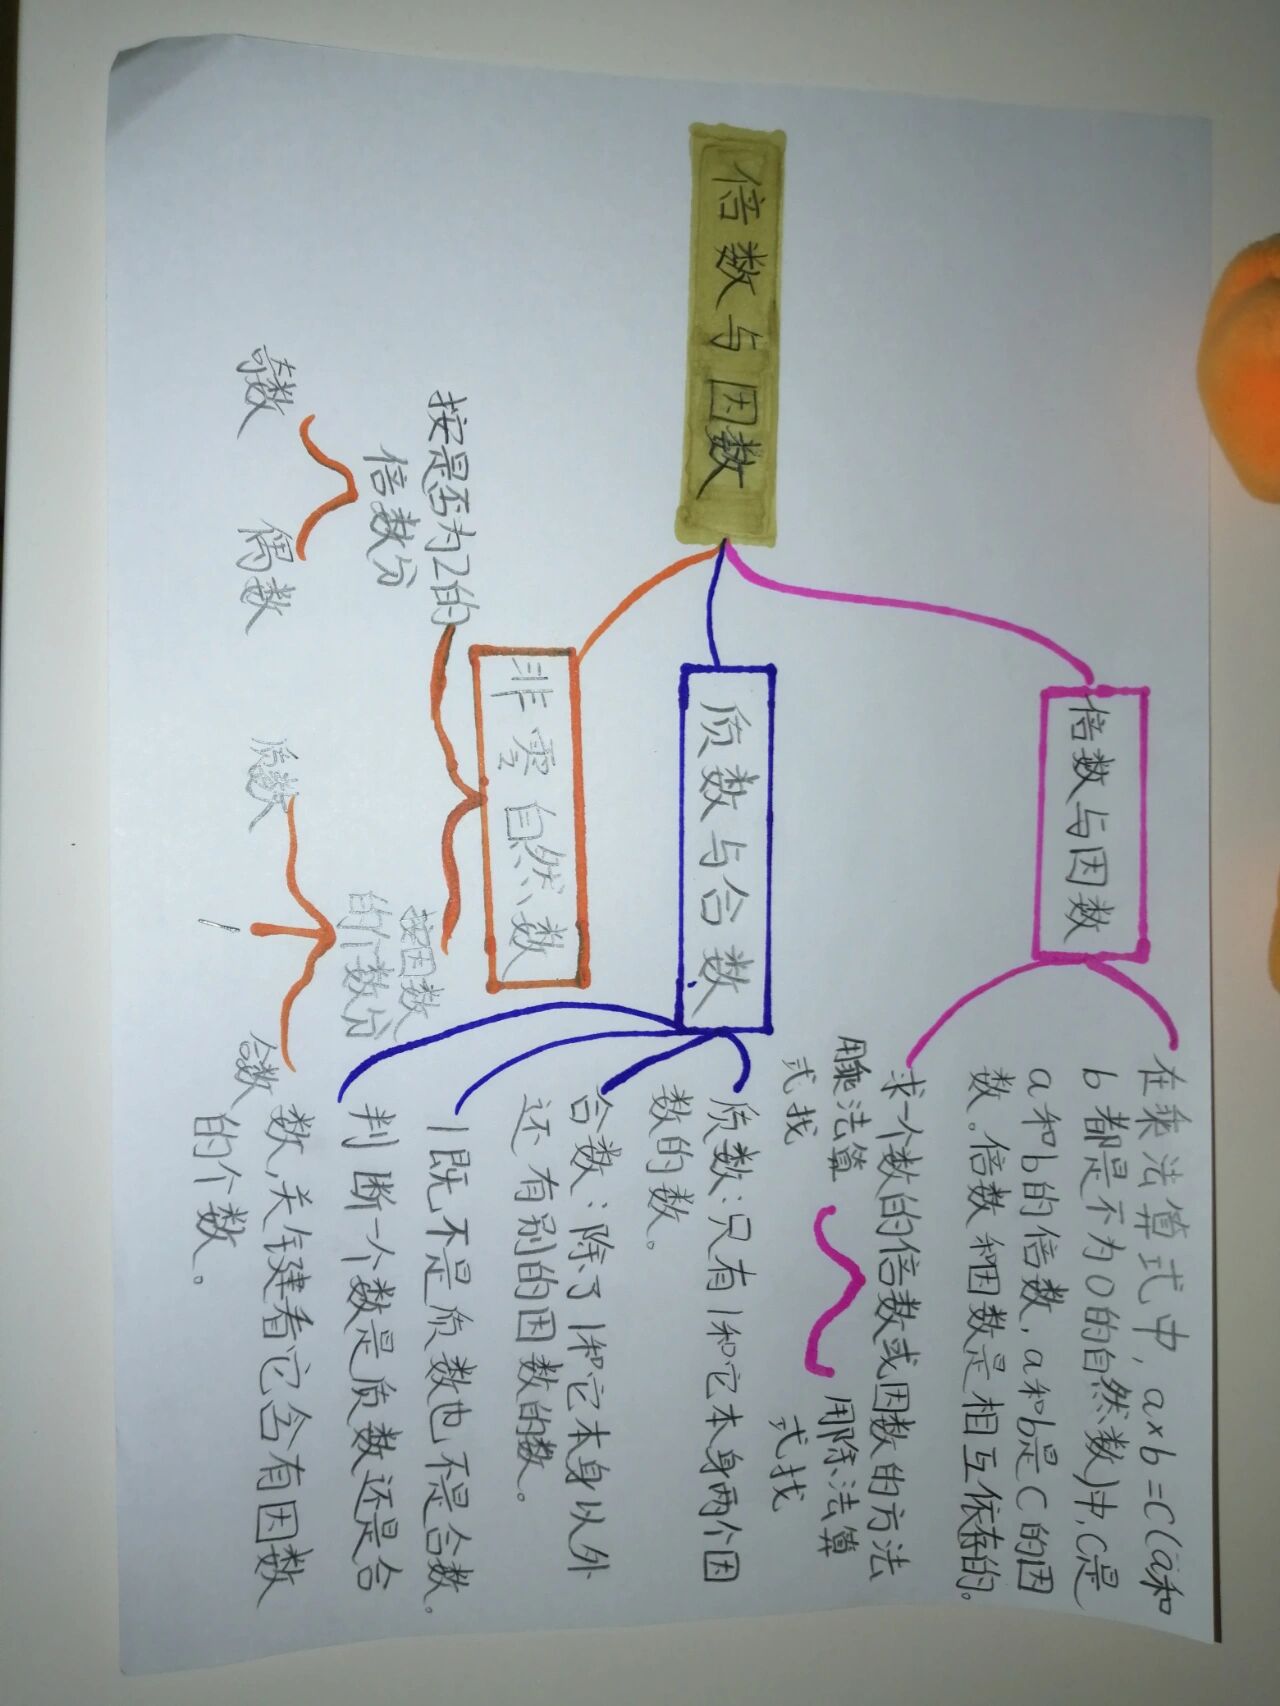 倍数与因数
倍数与因数
在乘法算式中，a×b=c(a和
b都是不为0的自然数)中,c是
a和b的倍数，a和b是c的因
数。倍数和因数是相互依存的。
求一个数的倍数或因数的方法
用乘法算
式找
用除法算
式找
质数与合数
质数：只有1和它本身两个因
数的数。
合数：除了1和它本身以外
还有别的因数的数。
1既不是质数也不是合数.
判断一个数是质数还是合
数,关键看它含有因数
的个数。
非零自然数
按是否为2的
倍数分
奇数
偶数
按因数
的个数分
质数
1
合数